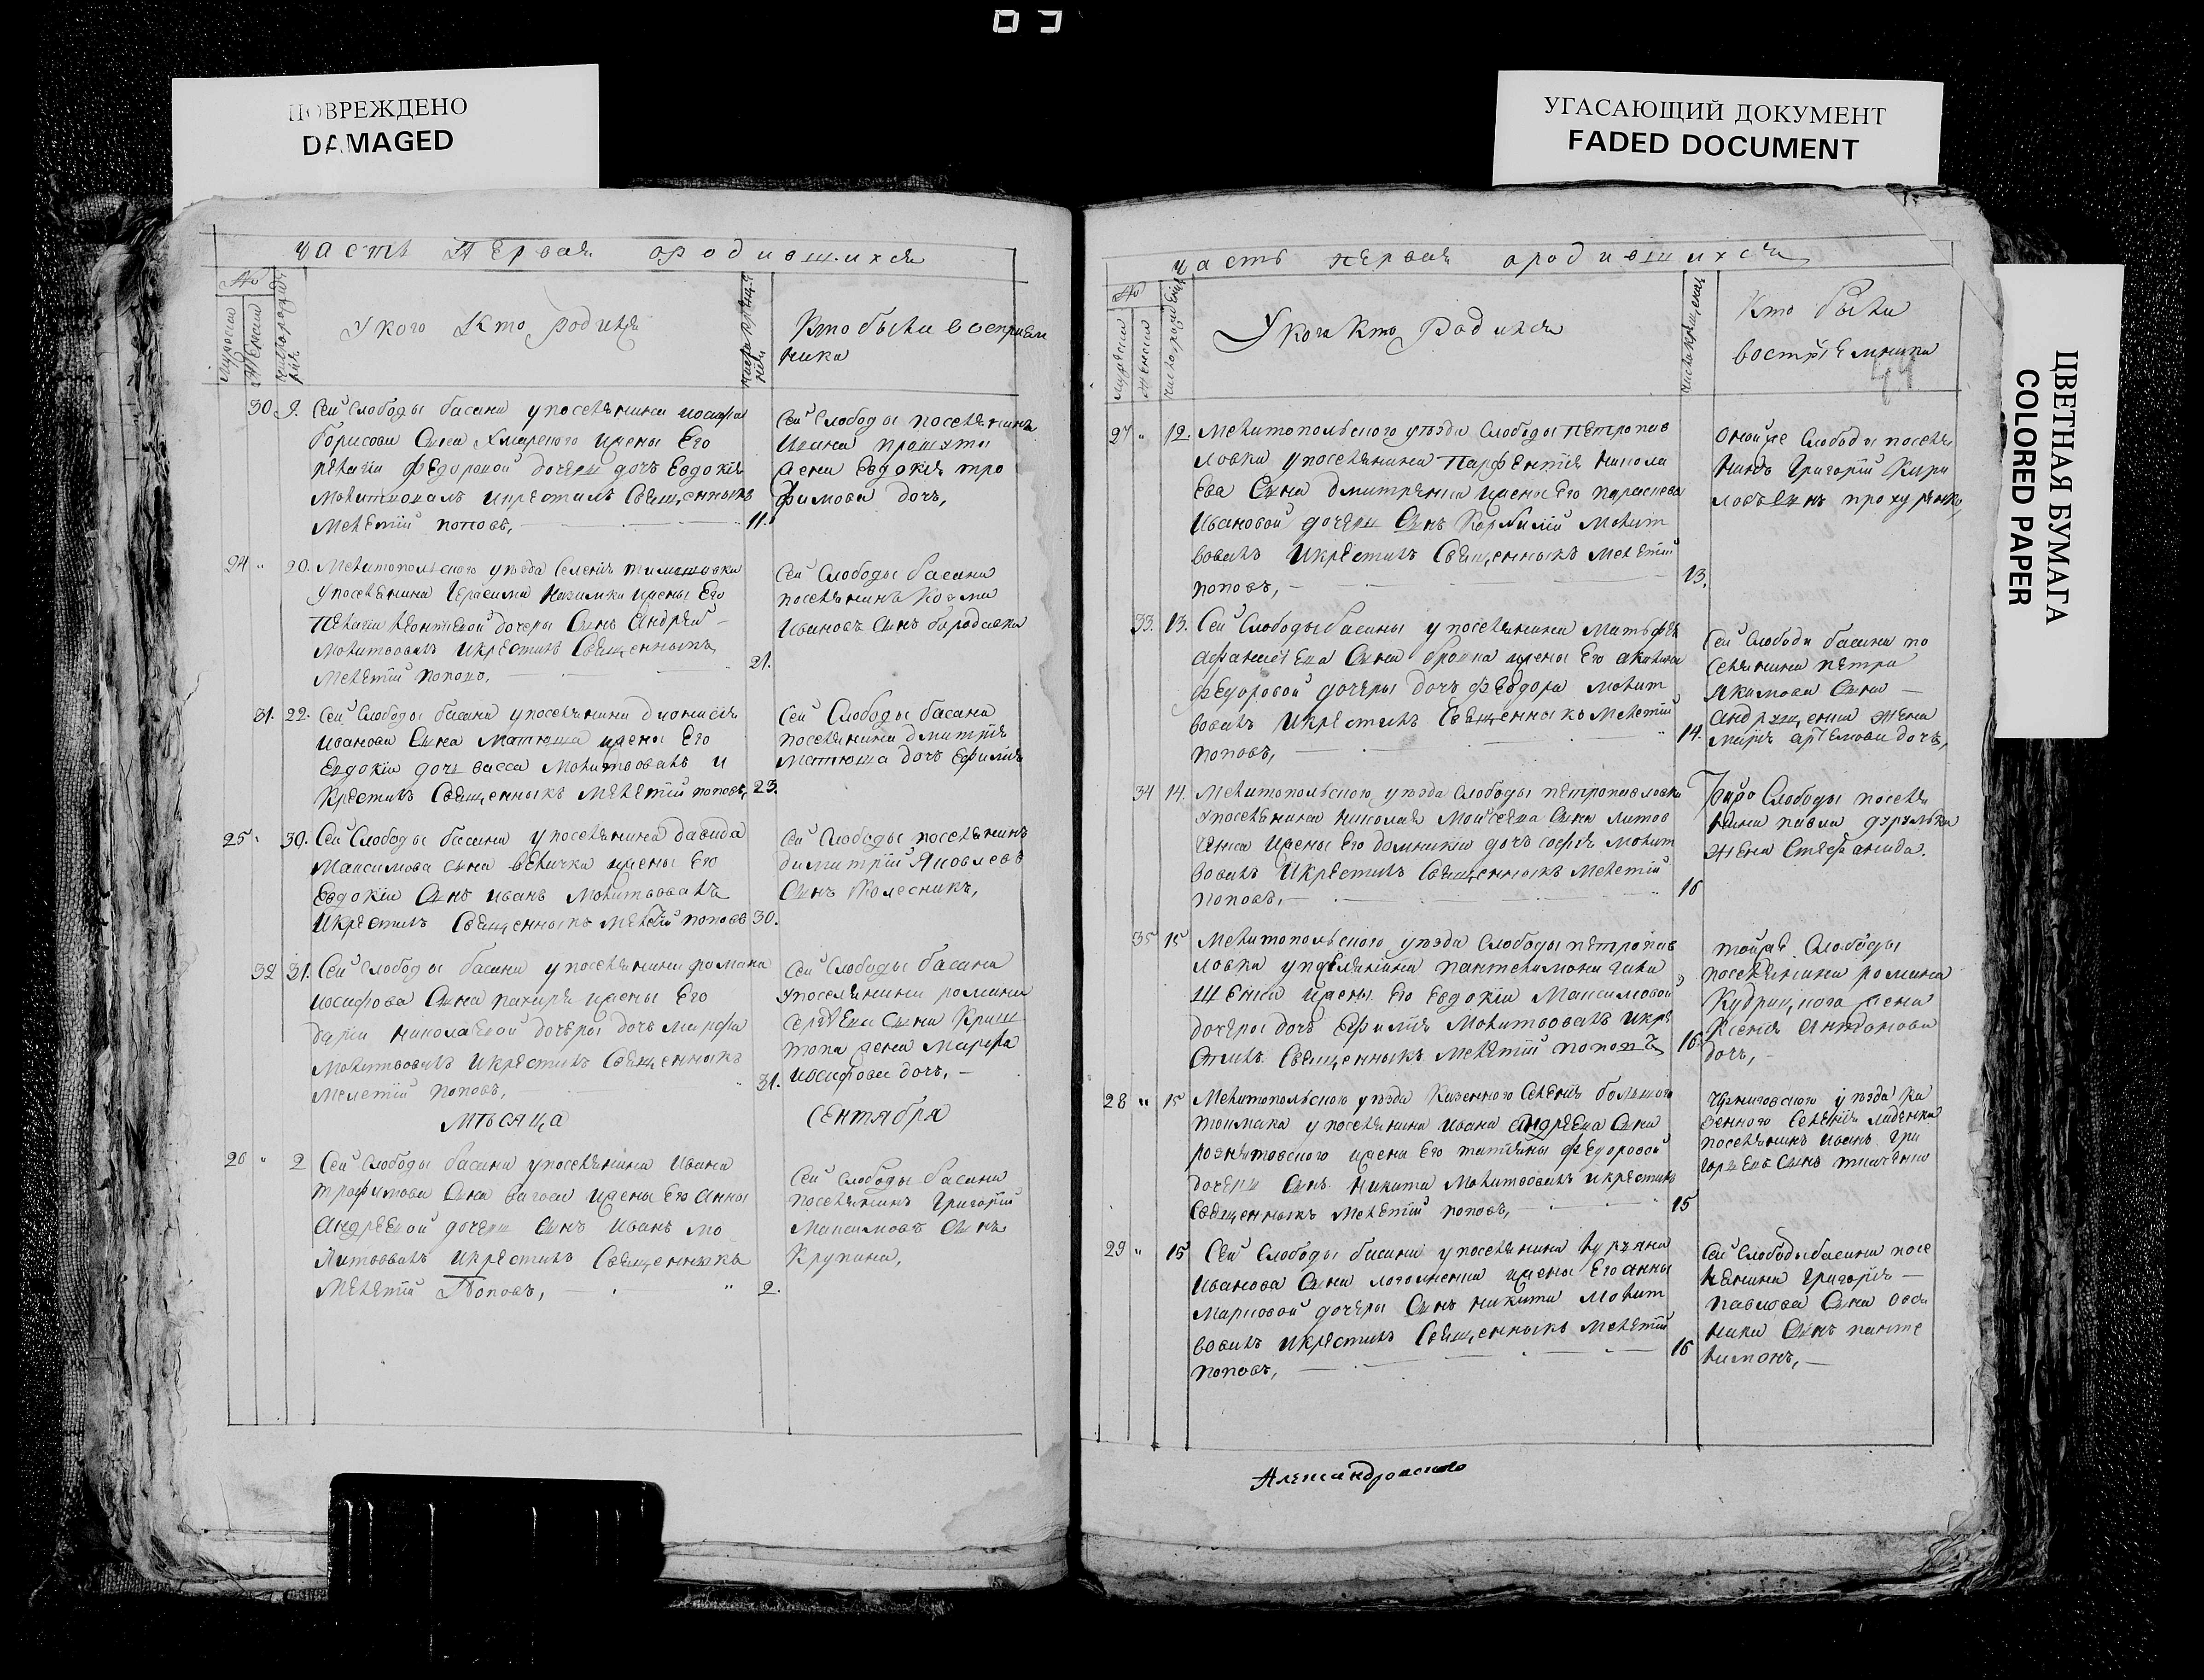 ПОВРЕЖДЕНО
DAMAGED
УГАСАЮЩИЙ ДОКУМЕНТ
FADED DOCUMENT
ЦВЕТНАЯ БУМАГА
COLORED PAPER
часть Первая ородившихся
№
Мужеска
Женска
число рожде
нія
У кого Кто родился
число креще
нія
Кто были восприем
ника
30 9. Сей Слободы басани упоселянина иосифа
борисова Сына Хмарского жены Его
пелагіи федоровой дочеры дочь Евдокія
молитвовалъ икрестилъ Священникъ
мелетій поповъ, 11.
Сей Слободы поселянина
Ивана
жена Евдокія тро
фимова дочь,
24 " 20. Мелитопольскаго уъзда Селенія
упоселянина Герасима жены Его
пелагіи леонтіевой дочеры Сынъ Андрей
молитвовалъ икрестилъ Священникъ
мелетій поповъ, 21.
Сей Слободы басани
поселянинъ Козма
Ивановъ Сынъ бородавка
31. 22. Сей Слободы басани упоселянина діонисія
иванова Сына Матюша жены Его
Евдокіи дочь васса молитвовалъ и
крестилъ Священникъ Мелетій поповъ, 23.
Сей Слободы басани
поселянина дмитрія
матюша дочь Ефимія
25 " 30. Сей Слободы басани упоселянина давида
Максимова сына величка жены Его
Евдокіи Сынъ иванъ молитвовалъ
икрестилъ Священникъ мелетій поповъ 30.
Сей Слободы поселянинъ
димитрій Яковлевъ
Сынъ Колесникъ,
32 31. Сей Слободы басани упоселянина романа
иосифова Сына жены Его
даріи николаевой дочеры дочь Марфа
молитвовалъ икрестилъ Священникъ
мелетій поповъ, 31.
Сей Слободы басани
упоселянина романа
Сергеева Сына Криш
топа жена Марфа
иосифова дочь,
мъсяца Сентября
26 " 2 Сей Слободы басани упоселянина Ивана
трофимова Сына жены Его Анны
Андреевой дочеры Сынъ иванъ мо
литвовалъ икрестилъ Священникъ
мелетій Поповъ, " 2.
Сей Слободы басани
поселянинъ Григорій
Максимовъ Сынъ
Крупина,
часть первая ородившихся
№
мужеска
женска
число рожденія
У кого Кто родился
число крещенія
Кто были
воспріемника
27 " 12. Мелитопольскаго уъзда Слободы петропав
ловки упоселянина Парфентія никола
ева Сына дмитренка жены Его параскева
Ивановой дочеры Сынъ Корнилій молит
вовалъ икрестилъ Священникъ мелетій
поповъ, 13.
оной же Слободы поселя
нинъ Григорій Кири
ловъ сынъ
33. 13. Сей Слободы басаны упоселянина матвъя
афанасіева Сына жены Его акилина
федоровой дочеры дочь феодора молит
вовалъ икрестилъ Священникъ мелетій
поповъ, 14.
Сей Слободы басани по
селянина петра
Якимова Сына
Андрющенка жена
марія артемова дочь,
34 14. Мелитопольскаго уъзда Слободы петропавловки
упоселянина николая Мойсеева Сына литов
ченка жены Его домникіи дочь софія молит
вовалъ икрестилъ Священникъ мелетій
поповъ, 16
Слободы поселя
нина павла
жена Стефанида.
35 15 Мелитопольскаго уъзда Слободы петропав
ловки упоселянина пантелимона
щенка жены Его Евдокіи Максимовой
дочеры дочь Ефимія молитвовалъ икре
стилъ Священникъ мелетій поповъ 16.
тойже Слободы
поселянина романа
жена
Ксенія Антонова
дочь,
28 " 15 Мелитопольскаго уъзда Казенного Селенія большого
токмака упоселянина ивана андреева Сына
жены Его татіяны федоровой
дочеры Сынъ никита молитвовалъ икрестилъ
Священникъ мелетій поповъ, 15
Черниговского уъзда Ка
зенного Селенія
поселянинъ иванъ гри
горіевъ Сынъ
29 " 15 Сей Слободы басани упоселянина
иванова Сына жены Его анны
марковой дочеры Сынъ никита молит
вовалъ икрестилъ Священникъ мелетій
поповъ, 16
Сей Слободы басани посе
лянина Григорія
павлова Сына
Сынъ панте
лимонъ,